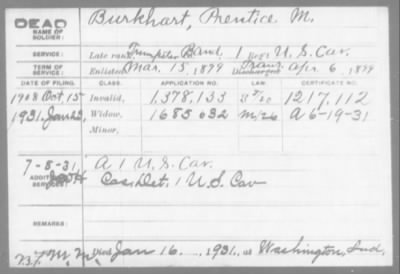 DEAD
NAME OF SOLDIER:
Burkhart, Prentice M.
SERVICE:
Late rank, Trumpeter Band, 1 Reg't U.S. Cav.
TERM OF SERVICE:
Enlisted Mar. 15, 1899 Discharged Apr 6, 1899
DATE OF FILING. CLASS. APPLICATION NO. LAW. CERTIFICATE NO.
1908 Oct. 15 Invalid, 1,378,133 1217,112
1931, Jan 23 Widow, 1685 032 A 6-19-31
Minor,
7-8-31, A 1 U.S. Cav.
ADDITIONAL SERVICES: Cas. Det. 1 U.S. Cav
REMARKS:
Died Jan 16, 1931, at Washington, Ind.